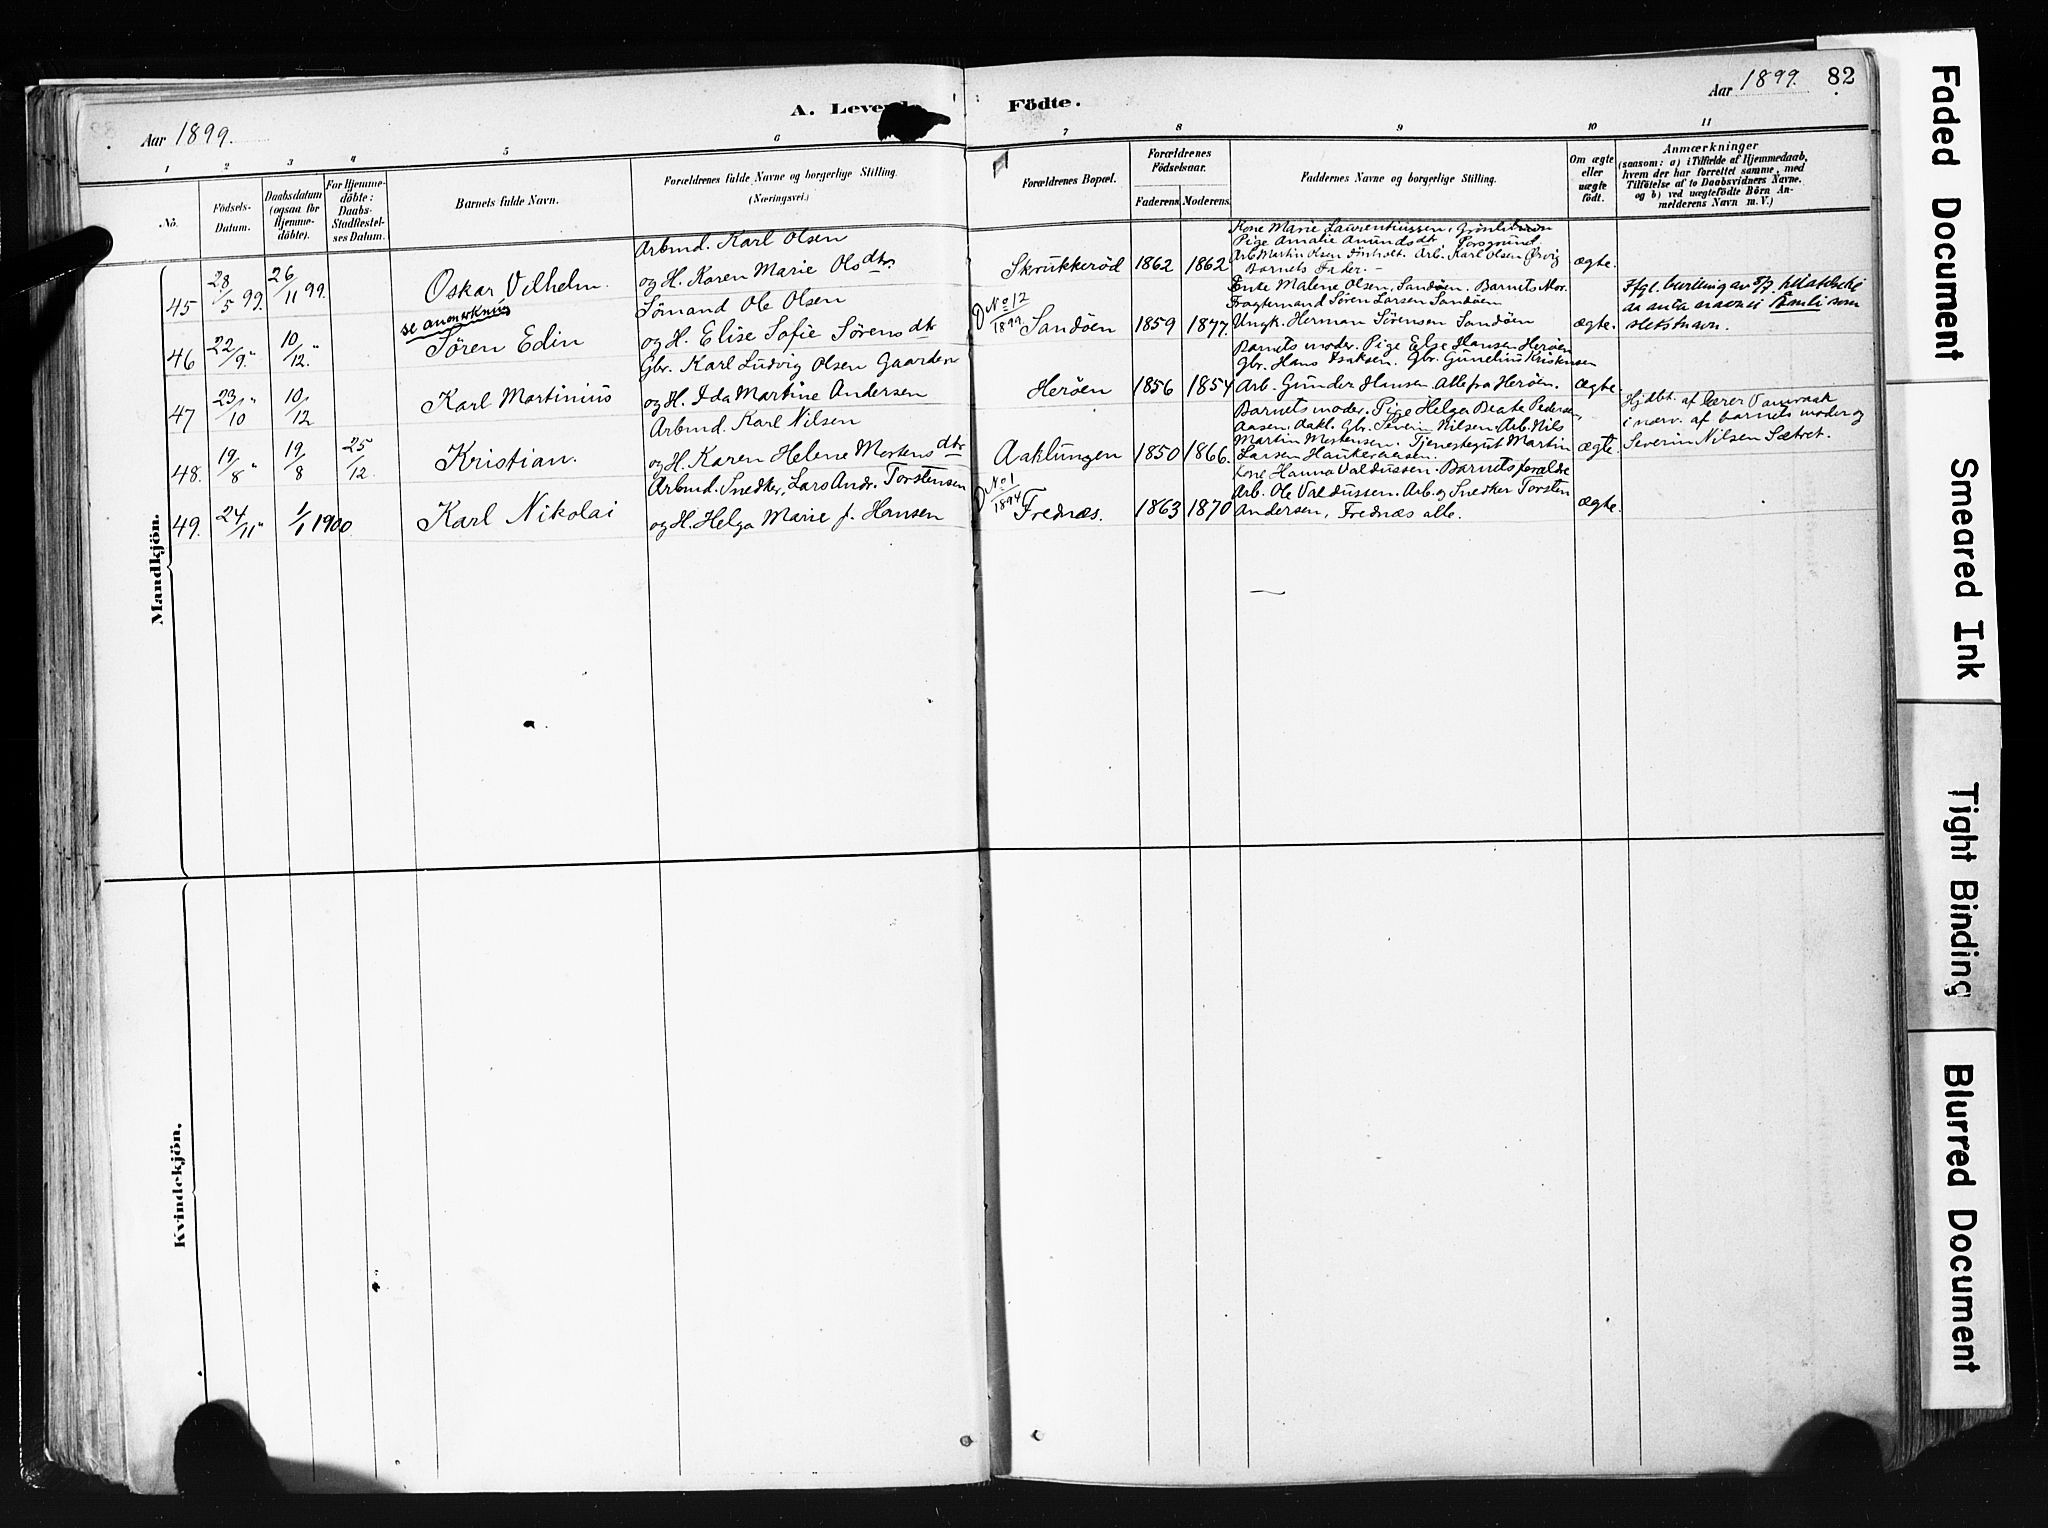 Aar 1899.
A. Levende
Fødte.
Aar 1899. 82
1 2 3 4 5 6 7 8 9 10 11
No.
Fødsels-Datum.
Daabsdatum (ogsaa for Hjemme-døbte).
For Hjemme-døbte: Daabs-Stadfestel-ses Datum.
Barnets fulde Navn.
Forældrenes fulde Navne og borgerlige Stilling. (Næringsvei.)
Forældrenes Bopæl.
Forældrenes Fødselsaar.
Faderens. Moderens.
Faddernes Navne og borgerlige Stilling.
Om ægte eller uægte født.
Anmærkninger
(saasom: a) i Tilfælde af Hjemmedaab,
hvem der har forrettet samme, med
Tilføielse af to Daabsvidners Navne,
og b) ved uægtefødte Børn An-
melderens Navn m. V.)
Mandkjön.
45 28/5 99. 26/11 99. Oskar Vilhelm.
Arbmd. Karl Olsen
og H. Karen Marie Olsdtr.
Skrukkerød 1862 1862
Kone Marie Laurentiussen,
Pige Amalie Amundsdt, Porsgrund.
Arb. Martin Olsen Arb. Karl Olsen
Barnets Fader. —
ægte.
46 22/9 " 10/12 " se anmerkning
Søren Edin
Sømand Ole Olsen
og H. Elise Sofie Sørensdtr
No 12 1899. Sandøen 1859 1877.
Enke Malene Olsen, Sandøen. Barnets Mor.
Fragtemand Søren Larsen Sandøen
Ungk. Herman Sørensen Sandøen
ægte.
Ifgl. berling av
anta navnet som
slektsnavn.
47 23/10 " 10/12 Karl Martinius
Gbr. Karl Ludvig Olsen Gaarden
og H. Ida Martine Andersen
Herøen 1856 1854
Barnets moder. Pige Else Hansen Herøen
Gbr. Hans Isaksen. Gbr. Gunelius Kristensen
Arb. Gunder Hansen. Alle fra Herøen.
ægte.
48. 19/8 " 19/8 25/12 Kristian.
Arbmd. Karl Nilsen
og H. Karen Helene Mortensdtr
Aaklungen 1850 1866.
Barnets moder. Pige Helga Beate Pedersen,
Aasen, Aakl. Gbr. Severin Nilsen, Arb. Nils
Martin Mortensen. Tjenestegut Martin
Larsen Haukeraasen.
ægte.
Hjdbt. af Lærer
i nærv. af barnets moder og
Severin Nilsen Sætret.
49. 24/11 " 1/1 1900. Karl Nikolai
Arbmd. Snedker, Lars Andr. Torstensen
og H. Helga Marie f. Hansen
No 1 1894 Frednæs. 1863 1870
Kone Hanna Valdussen. Barnets forældre
Arb. Ole Valdussen. Arb. og Snedker Torsten
Andersen, Frednæs alle.
ægte.
Kvindekjön.
Faded Document
Smeared Ink
Tight Binding
Blurred Document